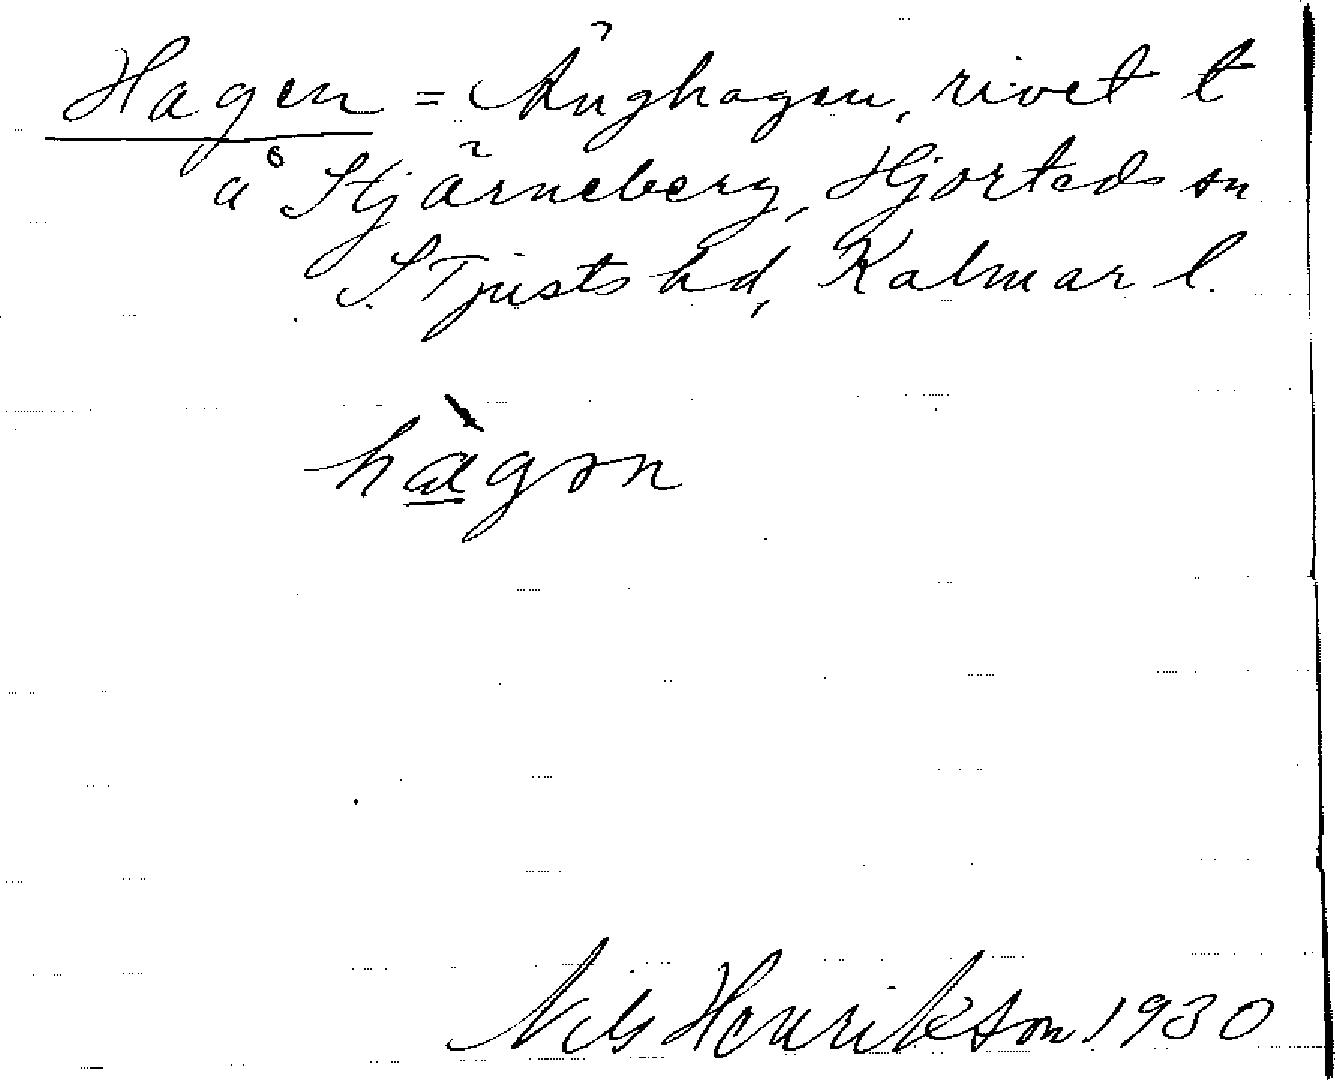 Hagen = Änghagen, rivet t
å Stjärneberg, Hjorteds sn
S. Tjusts hd, Kalmar l.
hàgɔn
Nils Henrikson 1930